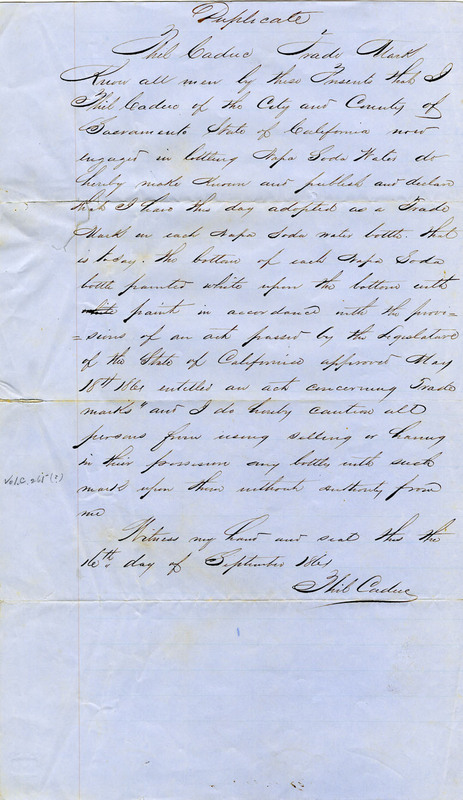 Duplicate
Phil Caduc Trade Mark
Know all men by these Presents that I
Phil Caduc of the City and County of
Sacramento State of California now
engaged in bottling Napa Soda Water do
hereby make known and publish and declare
that I have this day adopted as a Trade
Mark on each Napa Soda water bottle that
is to say the bottom of each Napa Soda
bottle painted white upon the bottom with
white paint in accordance with the provi-
=sions of an act passed by the Legislature
of the State of California approved May
18th 1861 entitled an act concerning Trade
marks" and I do hereby caution all
persons from using selling or having
in their possession any bottles with such
mark upon them without authority from
me
Witness my hand and seal this the
16th day of September 1861
Phil Caduc